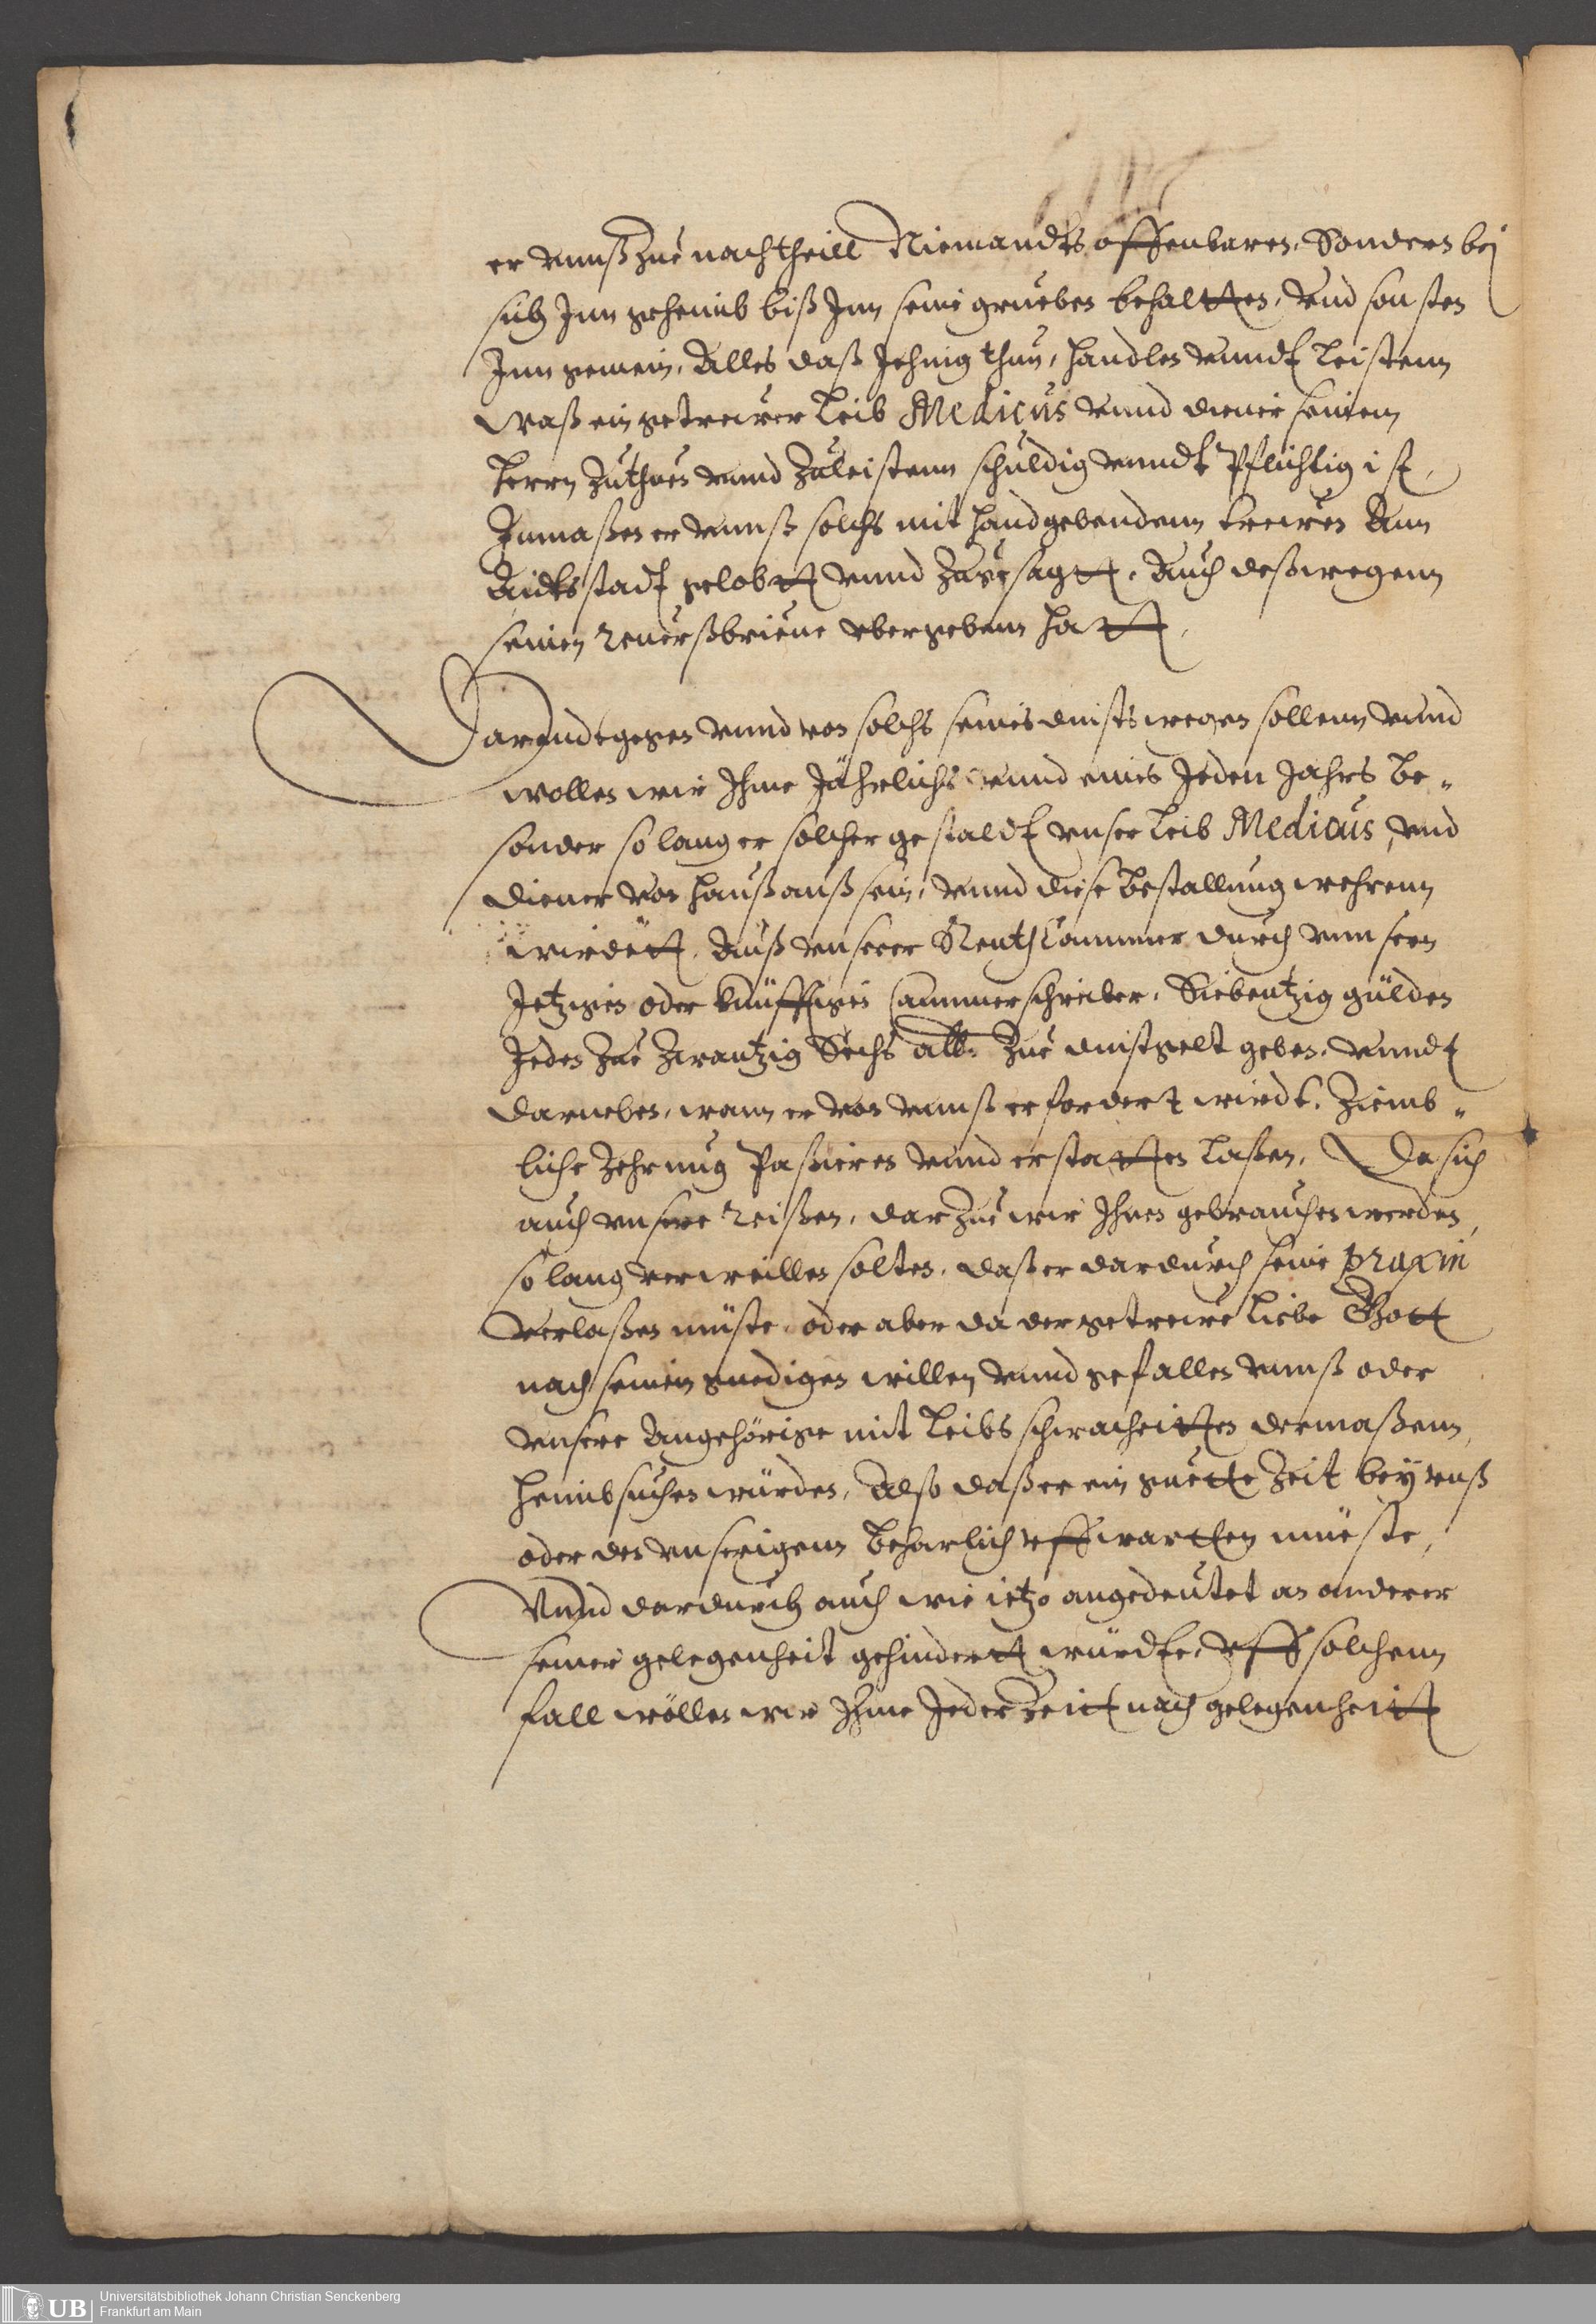 er vnnß zue nachtheill Niemandts offenbaren, Sondern bej
sich Inn geheimb biß Inn seine grueben behaltten, Vnd sonsten
Inn gemein, Alles daß Jehnig thun, handlen vnndt leistenn
Waß ein getrewer Leib Medicus vnnd diener seinem
Herrn Zuthuen vnnd Zuleistenn schuldig vnndt Pflichtig ist,
Inmaßen er vnnß solchs mit handgebendenn trewen Ann
Aidtsstadt gelobtt vnnd Zugesagtt, Auch deßwegenn
seinen Reuerßbrieue vbergebenn hatt,
Darendtgegen vnnd von solchs seines dinsts wegen sollenn vnnd
wollen wir Ihme Jährlichs vnnd eines Jeden Jahrs be„
sonder so lang er solcher gestaldt vnser Leib Medicus, vnd
Diener von Hauß auß sein, vnnd diese bestallung wehrenn
wirdett, Auß vnserer RenthCammer durch vnnsern
Jetzigen oder künfftigen Cammerschreiber, Siebentzig gülden
Jeden Zue Zwantzig Sechs alb. Zue dinstgelt geben, vnndt
darneben, wann er von vnnß erfordert wirdt, Ziemb„
liche Zehrung Paßieren vnnd erstatten laßen, Da sich
auch vnsere Reißen, dar Zue wir Ihnen gebrauchen werden,
so lang verweillen solten, daß er dardurch seine praxin
verlaßen müste, oder aber da der getrewe liebe Gott
nach seinem gnedigen willen vnnd gefallen vnnß oder
vnsere Angehörige mit Leibs schwacheitten dermaßenn,
heimbsuchen würden, Also daß er ein guette Zeit bey vnß
oder den vnserigenn beharlich vffwartten müeste,
Vnnd dardurch auch wie ietzo angedeutet an anderer
seiner gelegenheit gehindertt würdte, vff solchenn
fall wöllen wir Ihme JederZeitt nach gelegenheitt
Universitätsbibliothek Johann Christian Senckenberg
Frankfurt am Main
UB